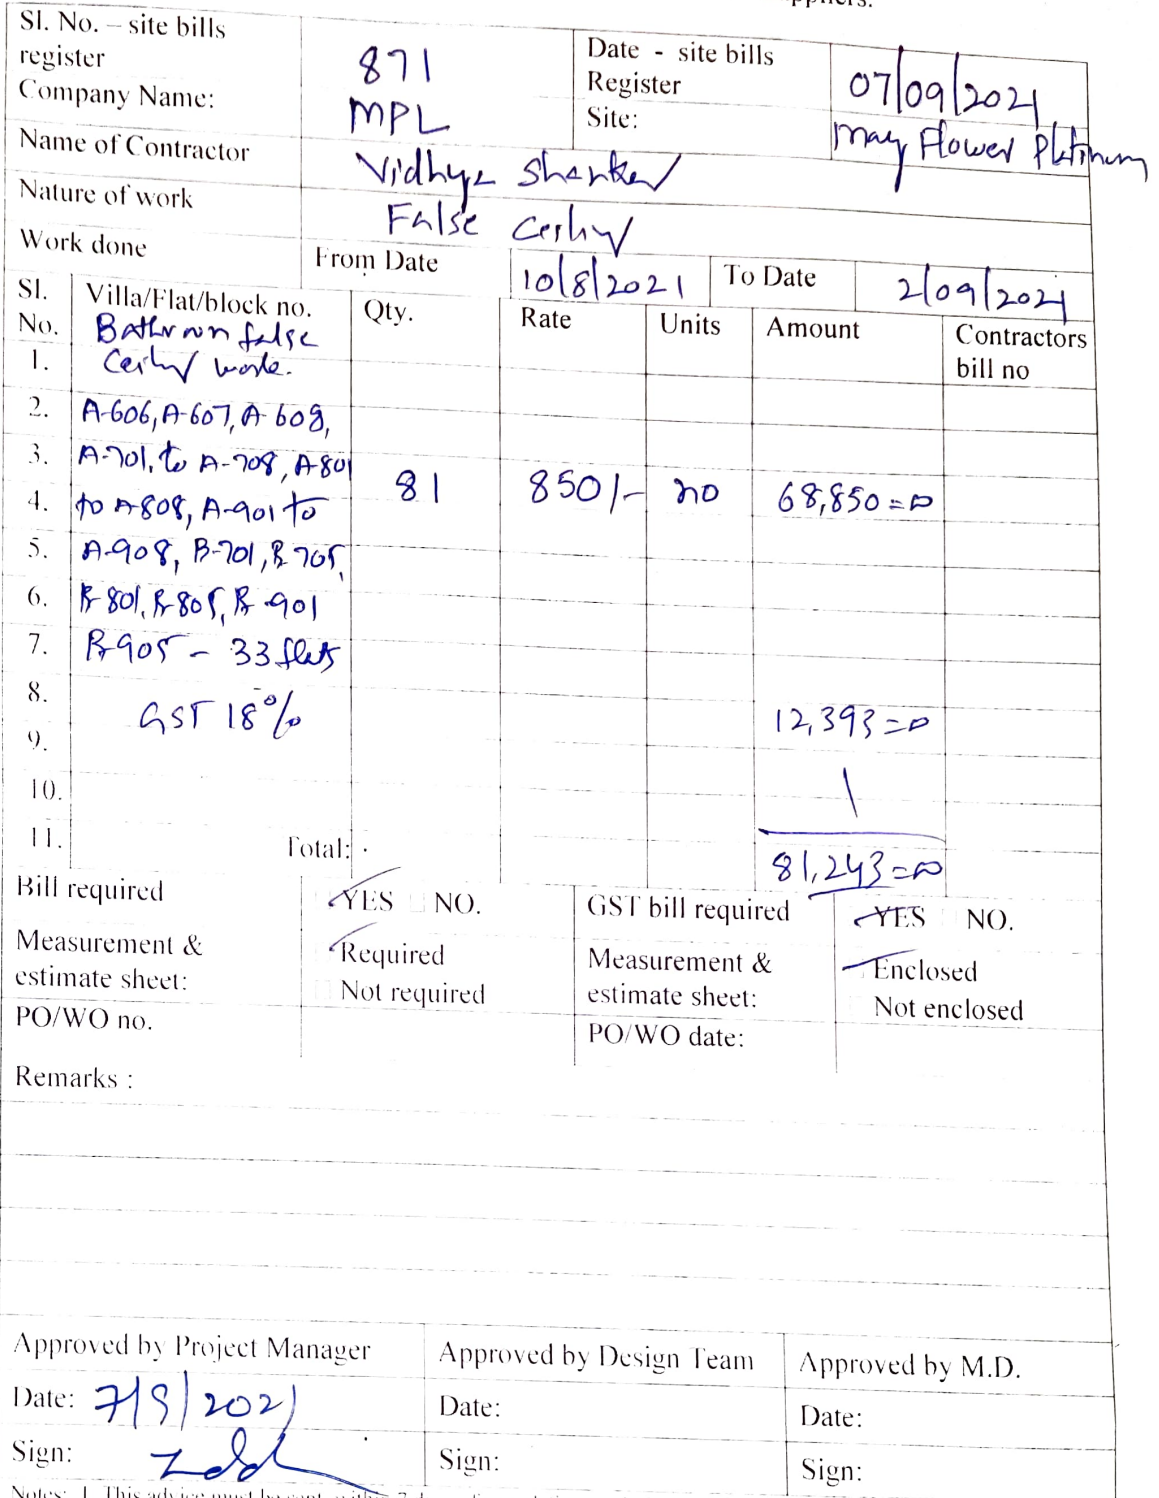 Sl. No. – site bills register 871 Date - site bills Register 07/09/2021
Company Name: MPL Site: May Flower Platinum
Name of Contractor Vidhya Shanker
Nature of work False Ceiling
Work done From Date 10/8/2021 To Date 2/09/2021
Sl. No. Villa/Flat/block no. Qty. Rate Units Amount Contractors bill no
Bathroom false
1. Ceiling work.
2. A-606, A-607, A-608,
3. A-701, to A-708, A-801
4. to A-808, A-901 to 81 850/- no 68,850=00
5. A-908, B-701, B-705,
6. B-801, B-805, B-901
7. B-905 - 33 flats
8. GST 18% 12,393=00
9.
10.
11. Total: 81,243=00
Bill required YES NO. GST bill required YES NO.
Measurement & estimate sheet: Required Not required Measurement & estimate sheet: Enclosed Not enclosed
PO/WO no. PO/WO date:
Remarks :
Approved by Project Manager Approved by Design Team Approved by M.D.
Date: 7/9/2021 Date: Date:
Sign: Sign: Sign:
Notes: 1. This advice must be